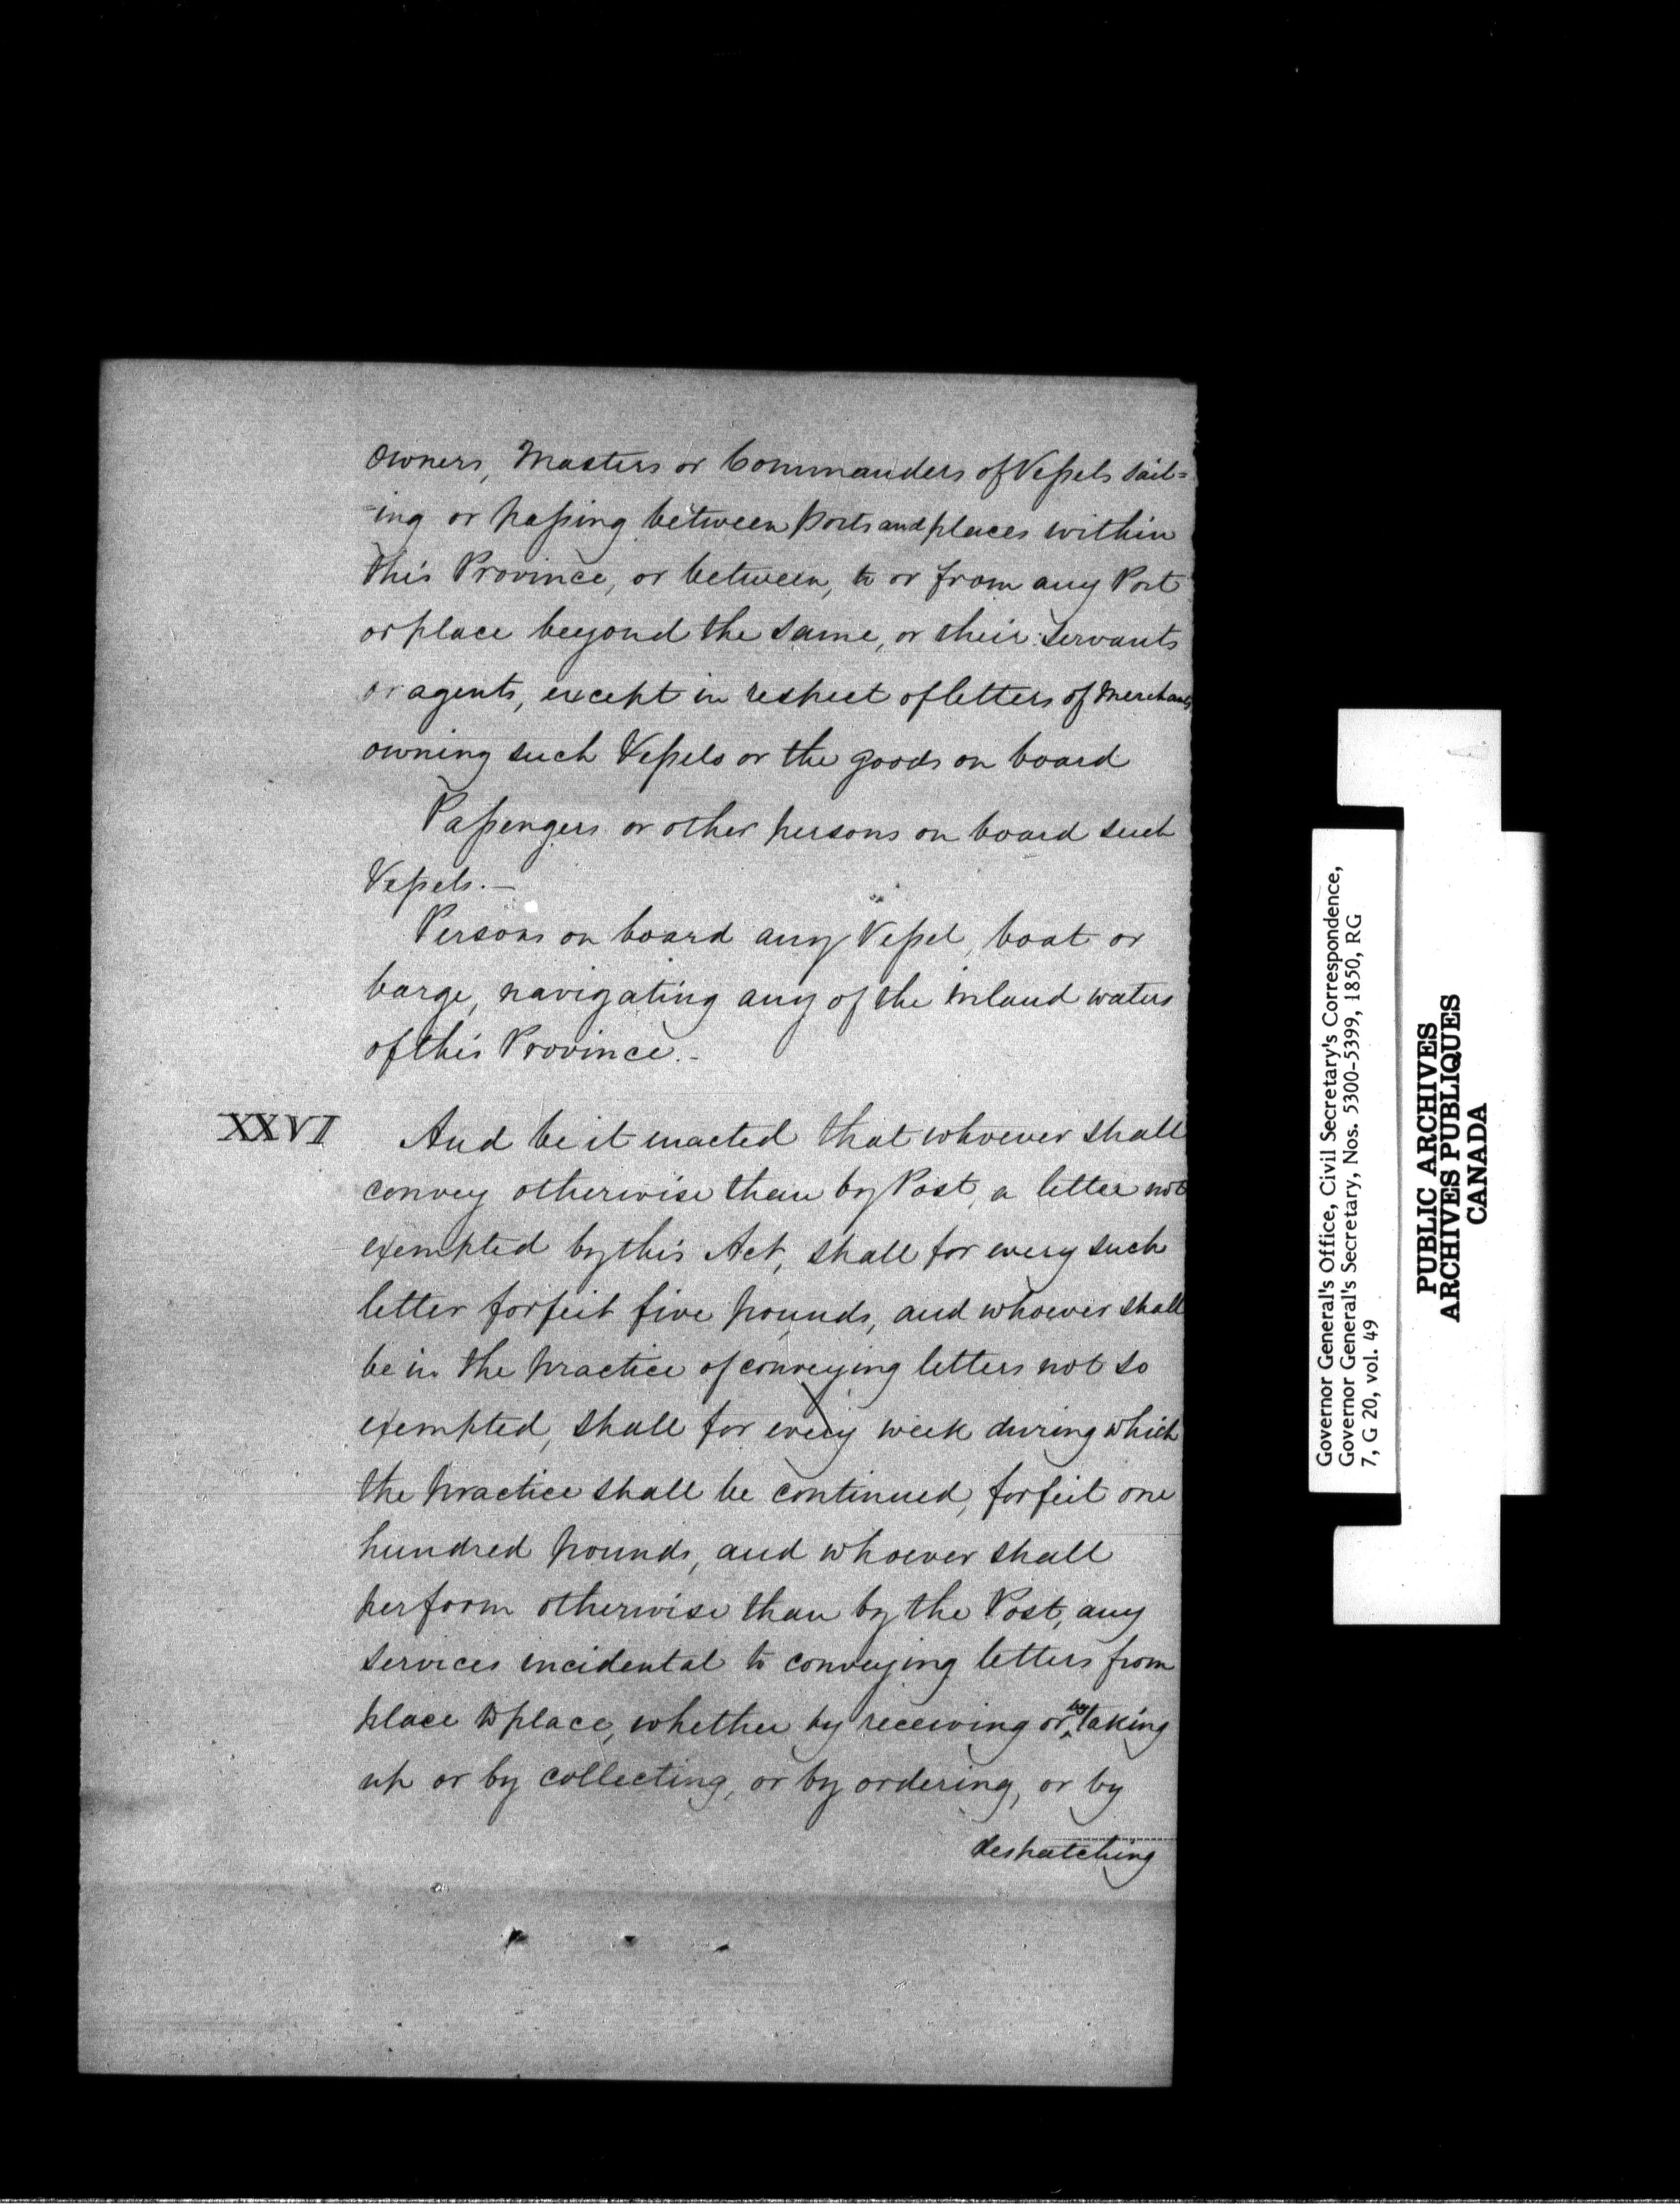 Owners, Masters or Commanders of Vessels sail=
=ing or passing between Ports and places within
this Province, or between, to or from any Port
or place beyond the same, or their servants
or agents, except in respect of letters of Merchants
owning such Vessels or the goods on board
Passengers or other persons on board such
Vessels.—
Persons on board any Vessel, boat or
barge, navigating any of the inland waters
of this Province.-
XXVI And be it enacted that whoever shall
convey otherwise than by Post, a letter not
exempted by this Act, shall for every such
letter forfeit five pounds, and whoever shall
be in the practice of conveying letters not so
exempted, shall for every week during which
the practice shall be continued, forfeit one
hundred pounds, and whoever shall
perform otherwise than by the Post, any
services incidental to conveying letters from
place to place, whether by receiving or by taking
up or by collecting, or by ordering, or by
despatching
Governor General's Office, Civil Secretary's Correspondence,
Governor General's Secretary, Nos. 5300-5399, 1850, RG
7, G 20, vol. 49
PUBLIC ARCHIVES
ARCHIVES PUBLIQUES
CANADA